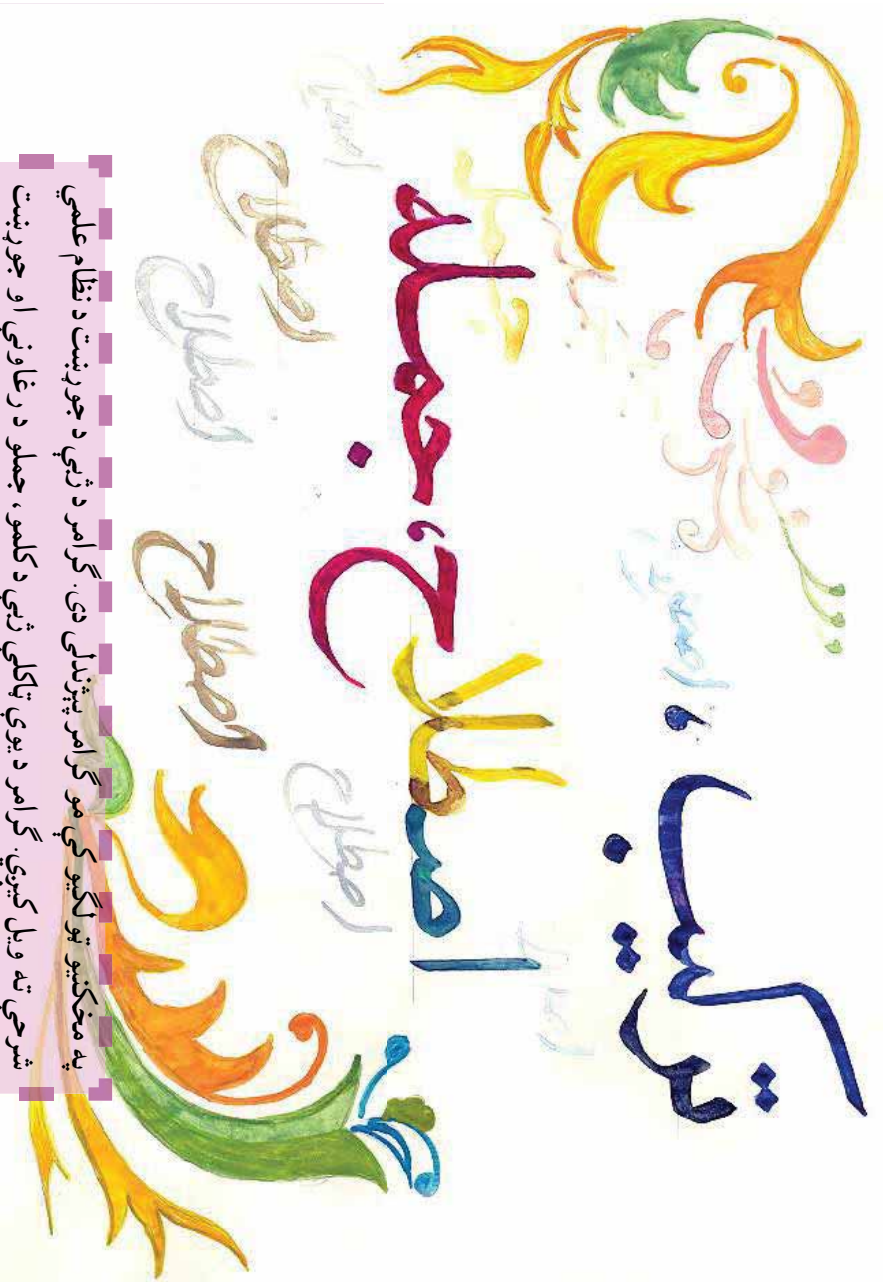 ترکیب،
اصطلاح، جمله
اصطلاح
اصطلاح
اصطلاح
اصطلاح
په مخکنیو ټولګیو کې مو ګرامر پېژندلی دی. ګرامر د ژبې د جوړښت د نظام علمي
شرحې ته ویل کېږي. ګرامر د یوې ټاکلې ژبې د کلمو، جملو د رغاونې او جوړښت